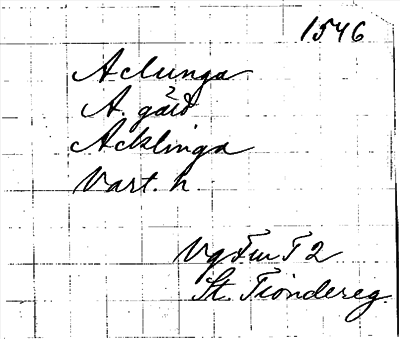 1546
Aclunga
A. gård
Acklinga
Vart. h.
Vg Fm T 2
St. Tiondereg.